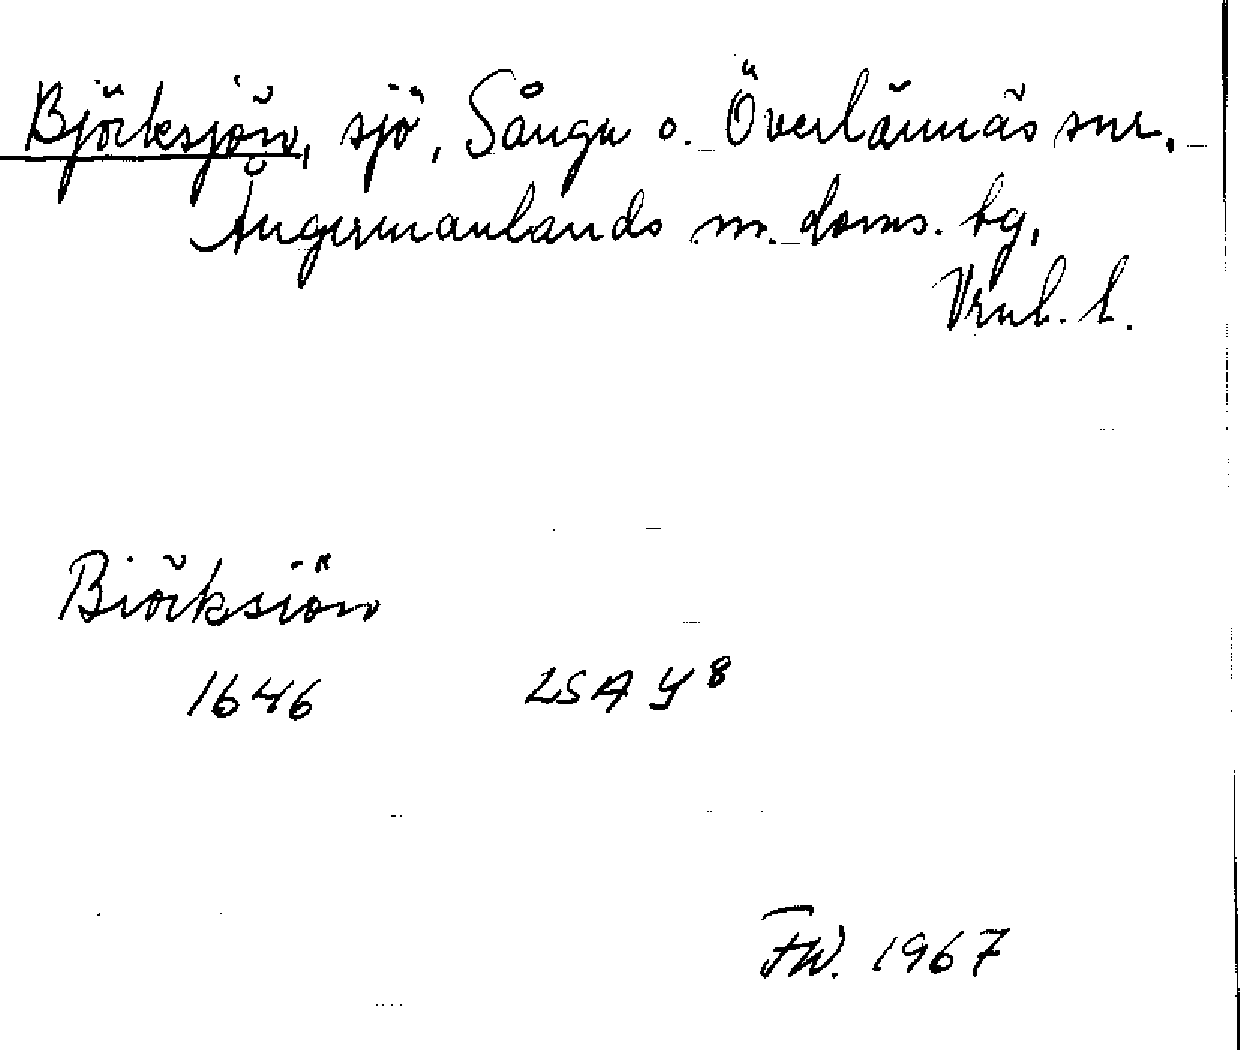 Björksjön, sjö, Sånga o. Överlännäs snr.
Ångermanlands m. doms. tg,
Vrnl. l.
Biörksiön
1646 LSA Y8
FW. 1967